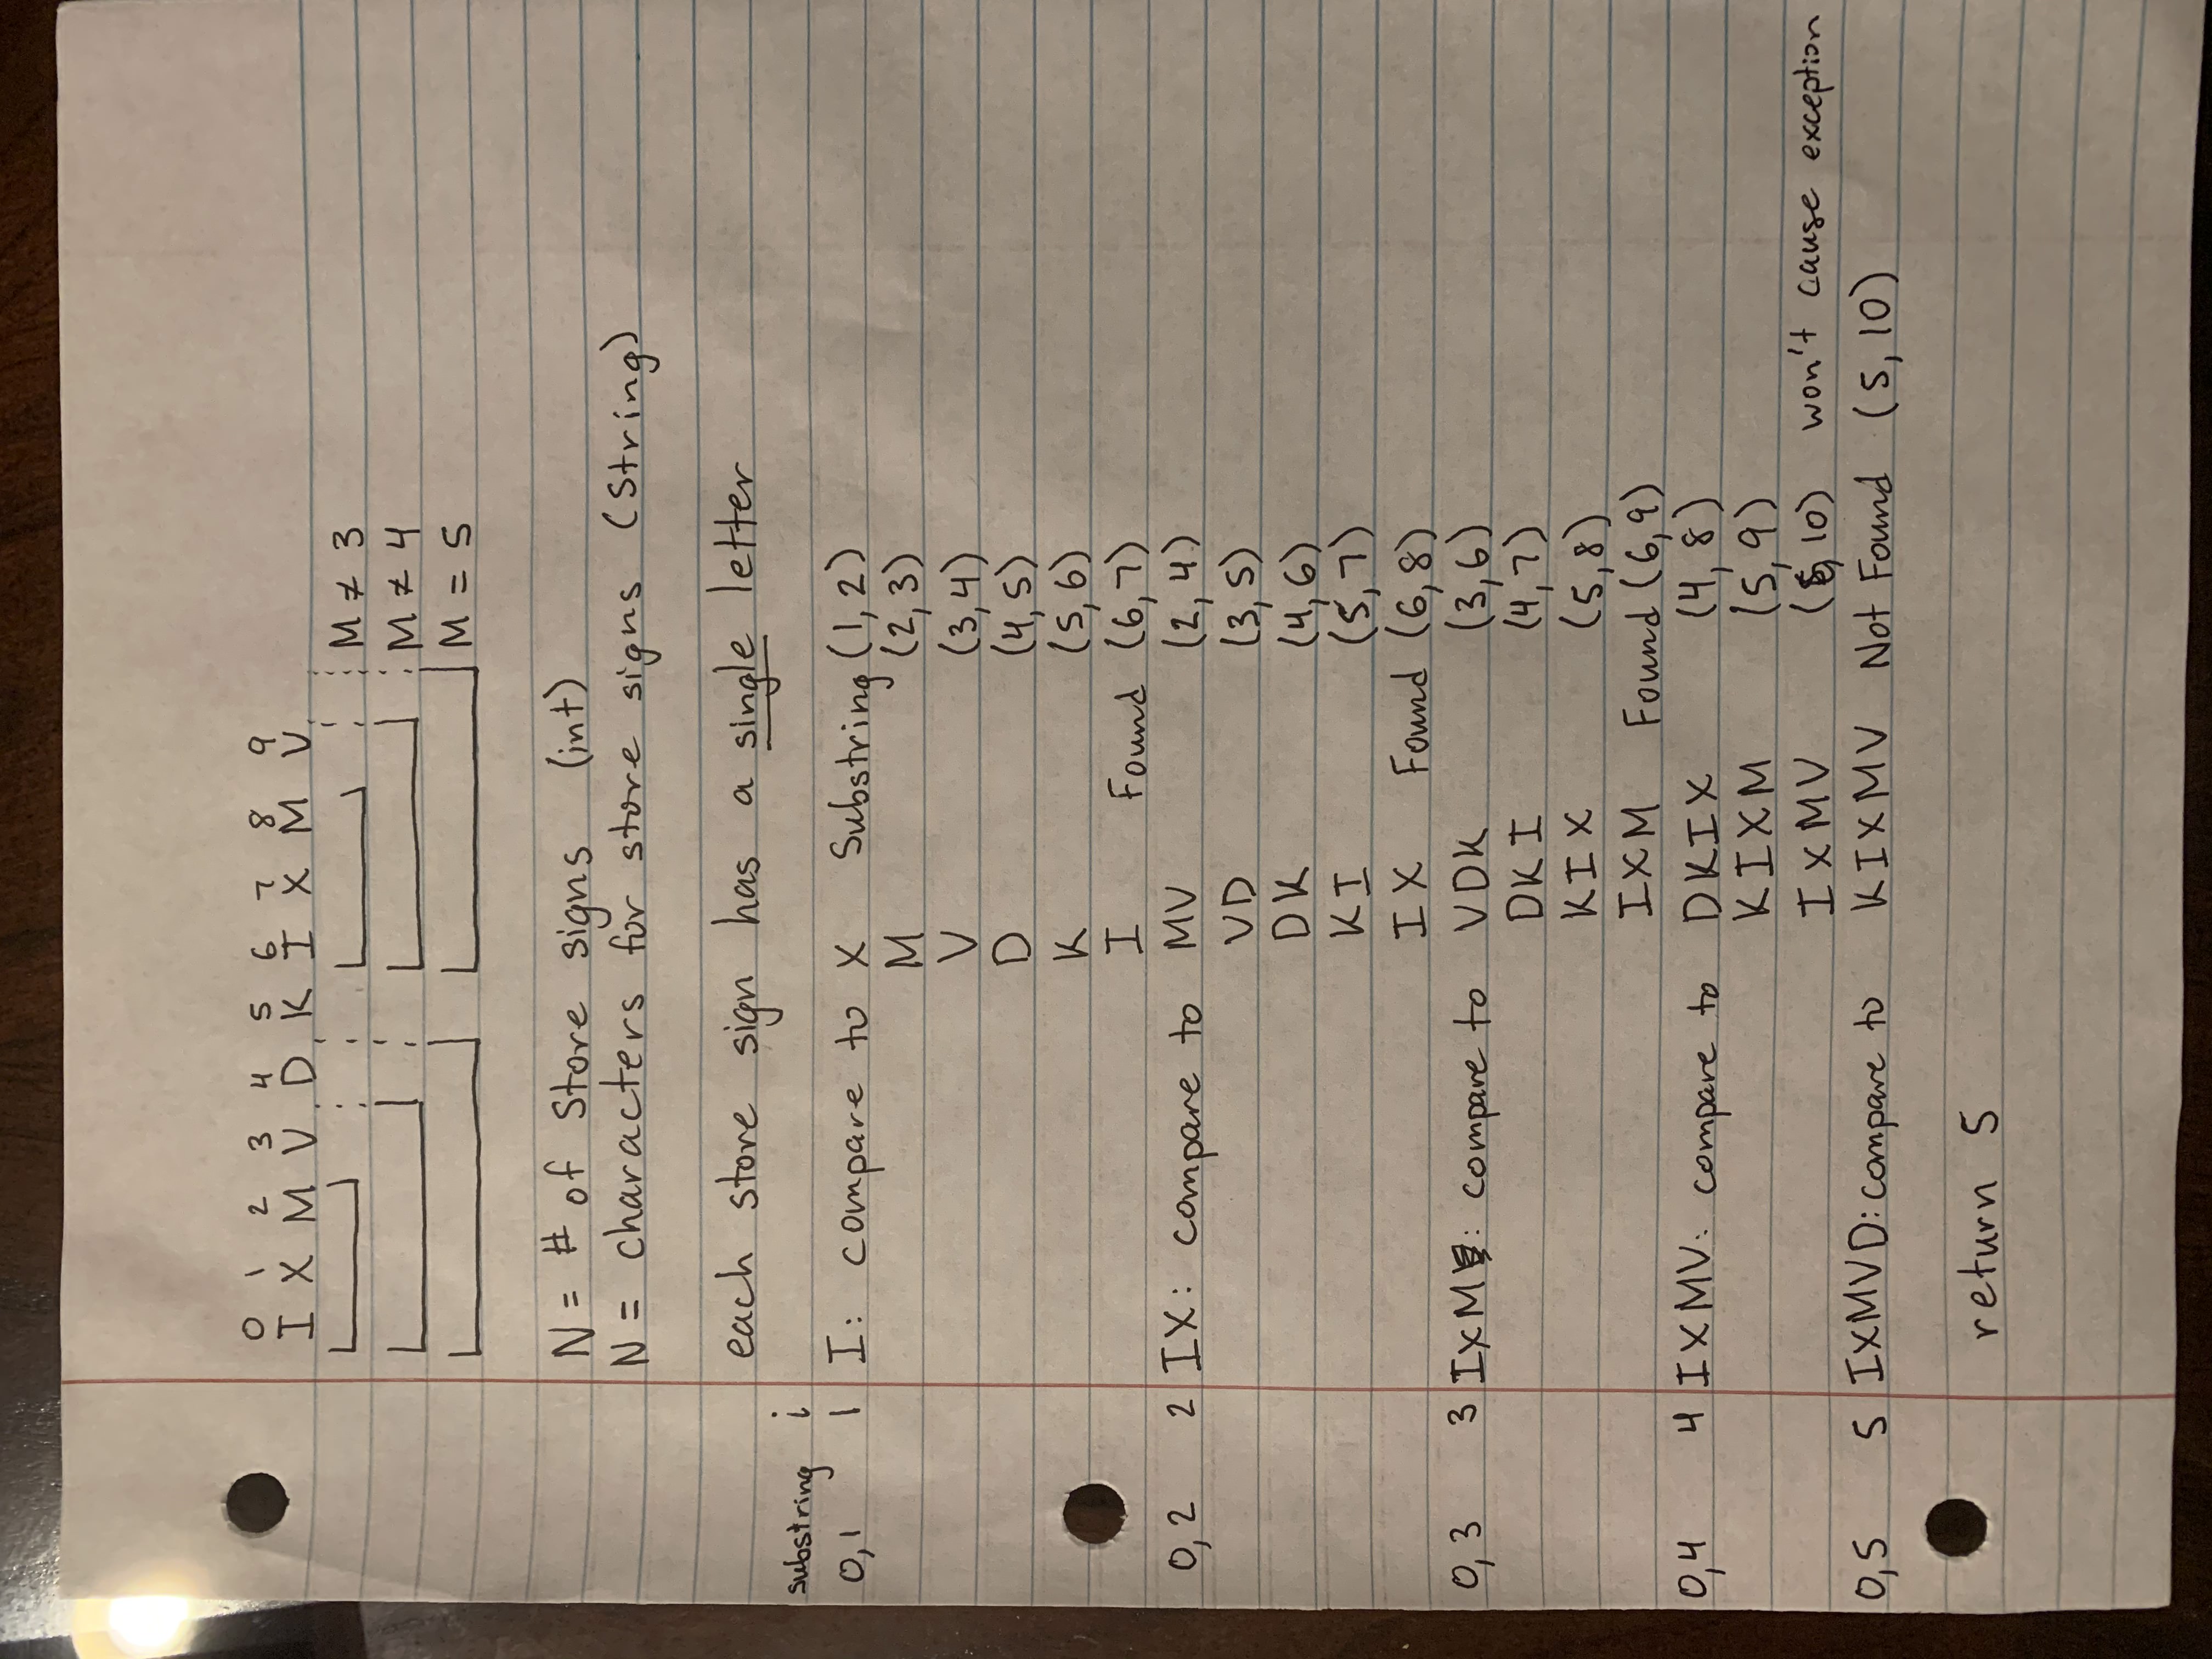 0 1 2 3 4 5 6 7 8 9
I X M V D K I X M V
M ≠ 3
M ≠ 4
M = 5
N = # of Store signs (int)
N = characters for store signs (String)
each store sign has a single letter
substring i
0,1 1 I: compare to X Substring (1,2)
M (2,3)
V (3,4)
D (4,5)
K (5,6)
I Found (6,7)
0,2 2 IX: compare to MV (2,4)
VD (3,5)
DK (4,6)
KI (5,7)
IX Found (6,8)
0,3 3 IXM: compare to VDK (3,6)
DKI (4,7)
KIX (5,8)
IXM Found (6,9)
0,4 4 IXMV: compare to DKIX (4,8)
KIXM (5,9)
IXMV (6,10) won't cause exception
0,5 5 IXMVD: compare to KIXMV Not Found (5,10)
return 5